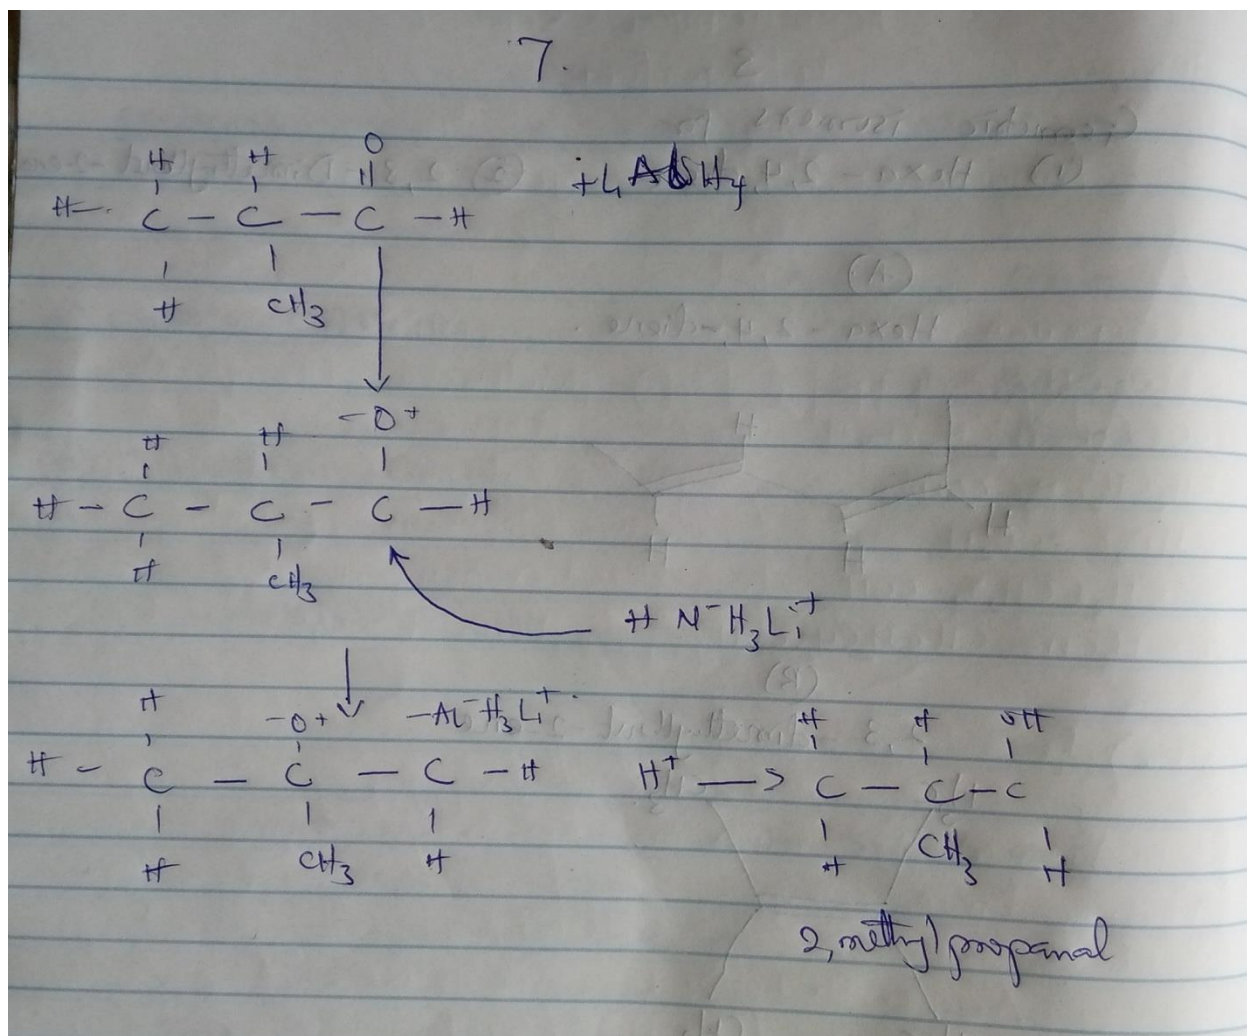 7.
O
H H ||
H - C - C - C - H + LiAlH4
H CH3
-O+
H H
H - C - C - C - H
H CH3
H N-H3Li+
H -O+ -Al-H3Li+
H - C - C - C - H
H CH3 H
H H OH
H+ → C - C - C
H CH3 H
2, methyl propanal